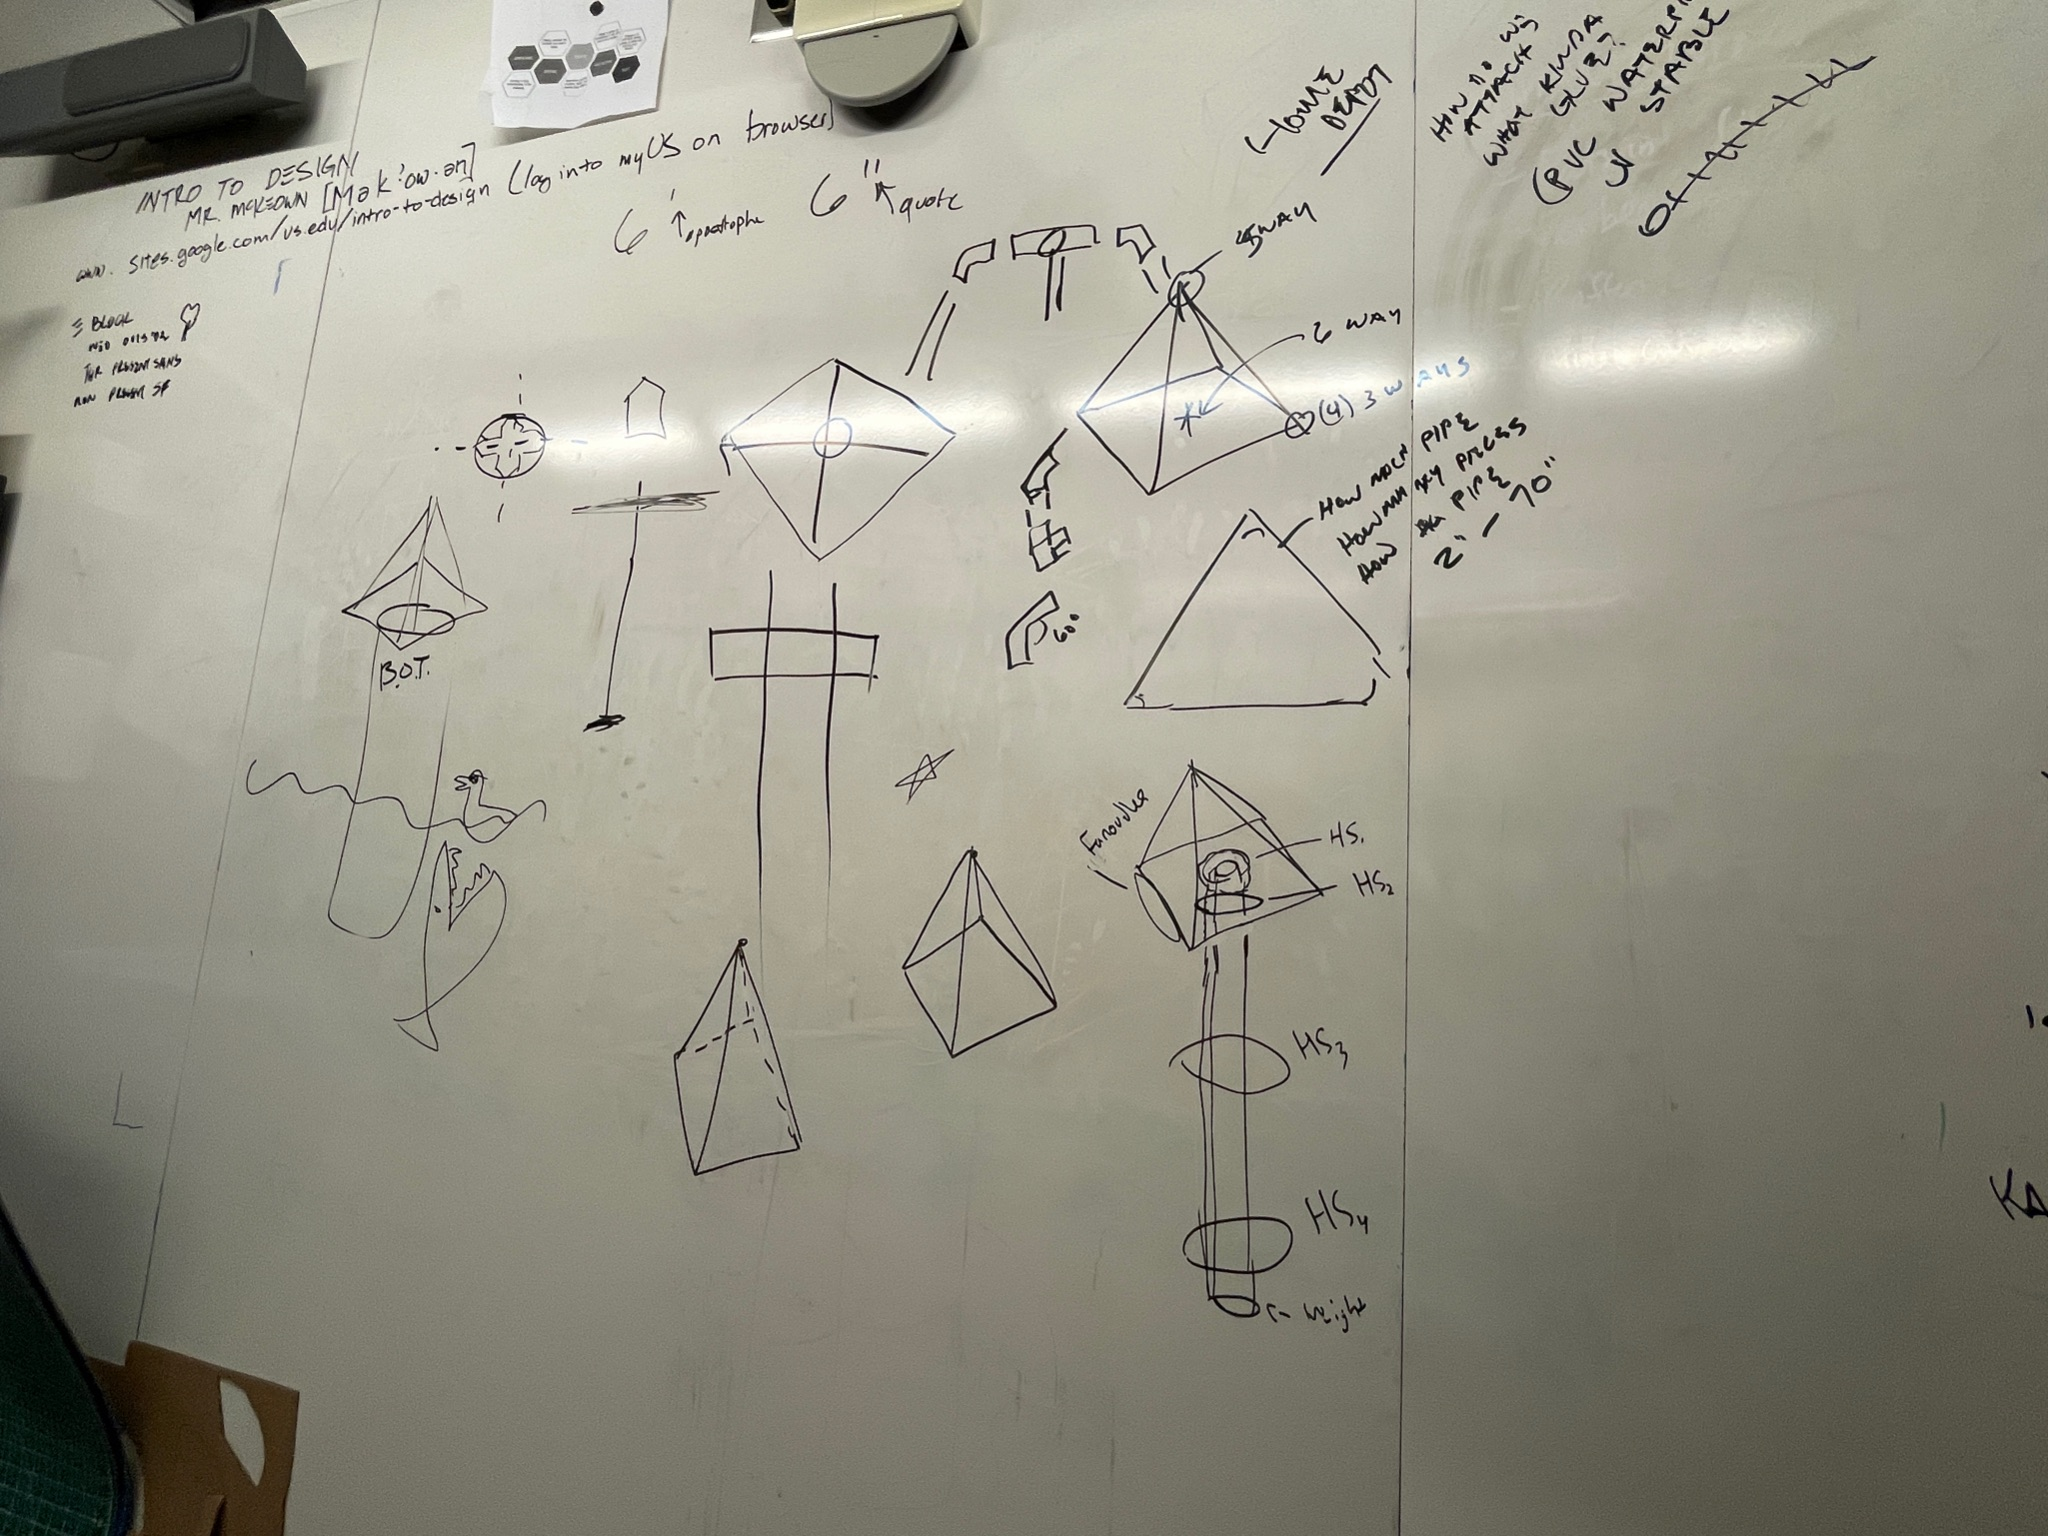 INTRO TO DESIGN
MR. MCKEOWN [Mək'ow.ən]
www. sites.google.com/us.edu/intro-to-design (log into myUS on browser)
6 ' ↑ apostrophe 6 " ↑ quote
HOME
DEPOT
HOW DO WE
ATTACH
WHAT KINDA
GLUE?
(PVC
STABLE
BLOCK
5WAY
6 WAY
(4) 3 WAYS
HOW MUCH PIPE
HOW MANY PIECES
HOW PIPE
2" - 70"
60°
B.O.T.
HS1
HS2
HS3
HS4
weight
KA